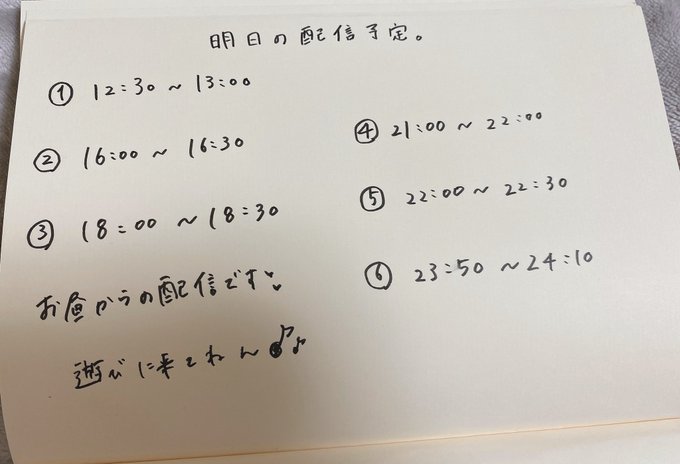 明日の配信予定。
① 12:30 ~ 13:00
② 16:00 ~ 16:30
③ 18:00 ~ 18:30
④ 21:00 ~ 22:00
⑤ 22:00 ~ 22:30
⑥ 23:50 ~ 24:10
お昼からの配信です
遊びに来てねん♪♪